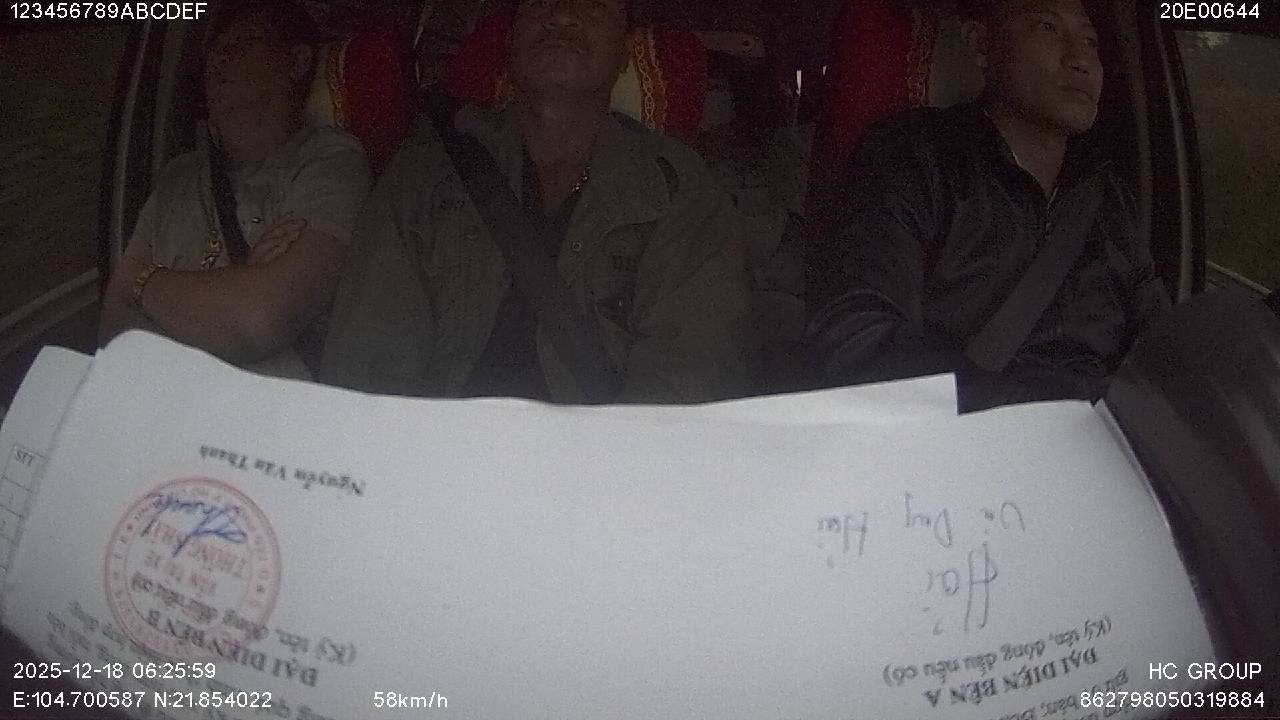 123456789ABCDEF
20E00644
Nguyễn Văn Thanh
ĐẠI DIỆN BÊN B
(Ký tên, đóng dấu nếu có)
VẬN TẢI
ĐẠI DIỆN BÊN A
(Ký tên, đóng dấu nếu có)
Hải
Vũ Duy Hải
2025-12-18 06:25:59
HC GROUP
E:104.700587 N:21.854022
58km/h
862798050319884